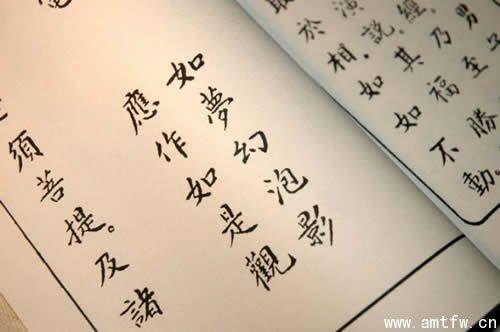 男子
經。乃至
演說。其福勝
取於相。如如不動。
如夢幻泡影
應作如是觀
須菩提。及諸
www.amtfw.cn